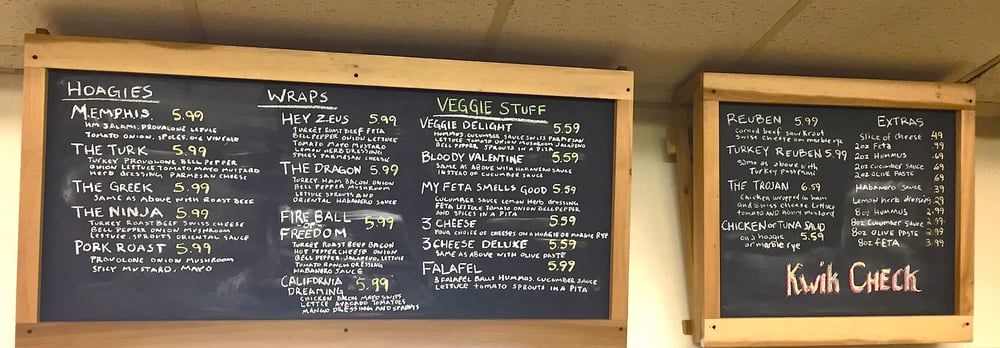 HOAGIES
MEMPHIS 5.99
HAM SALAMI, PROVALONE LETTUCE
TOMATO ONION, SPICES, OIL VINEGAR
THE TURK 5.99
TURKEY PROVOLONE BELL PEPPER
ONION LETTUCE TOMATO MAYO MUSTARD
HERB DRESSING PARMESAN CHEESE
THE GREEK 5.99
SAME AS ABOVE WITH ROAST BEEF
THE NINJA 5.99
TURKEY ROAST BEEF SWISS CHEESE
BELL PEPPER ONION MUSHROOM
LETTUCE, SPROUTS ORIENTAL SAUCE
PORK ROAST 5.99
PROVOLONE ONION MUSHROOM
SPICY MUSTARD, MAYO
WRAPS
HEY ZEUS 5.99
TURKEY ROAST BEEF FETA
BELL PEPPER ONION LETTUCE
TOMATO MAYO MUSTARD
LEMON HERB DRESSING
SPICES PARMESAN CHEESE
THE DRAGON 5.99
TURKEY HAM BACON ONION
BELL PEPPER MUSHROOM
LETTUCE SPROUTS AND
ORIENTAL HABANERO SAUCE
FIRE BALL 5.99
FREEDOM
TURKEY ROAST BEEF BACON
HOT PEPPER CHEESE ONION
BELL PEPPER, JALAPENO, LETTUCE
TOMATO RANCH DRESSING
HABANERO SAUCE
CALIFORNIA 5.99
DREAMING
CHICKEN BACON MAYO SWISS
LETTUCE AVOCADO TOMATOES
MANGO DRESSING AND SPROUTS
VEGGIE STUFF
VEGGIE DELIGHT 5.59
HUMMUS, CUCUMBER SAUCE SWISS PARMESAN
LETTUCE TOMATO ONION MUSHROOM JALAPENO
BELL PEPPER SPROUTS IN A PITA
BLOODY VALENTINE 5.59
SAME AS ABOVE WITH HABANERO SAUCE
INSTEAD OF CUCUMBER SAUCE
MY FETA SMELLS GOOD 5.59
CUCUMBER SAUCE LEMON HERB DRESSING
FETA LETTUCE TOMATO ONION BELL PEPPER
AND SPICES IN A PITA
3 CHEESE 5.59
YOUR CHOICE OF CHEESES ON A HOAGIE OR MARBLE RYE
3 CHEESE DELUXE 5.59
SAME AS ABOVE WITH OLIVE PASTE
FALAFEL 5.99
3 FALAFEL BALLS HUMMUS, CUCUMBER SAUCE
LETTUCE TOMATO SPROUTS IN A PITA
REUBEN 5.99
corned beef sourkrout
Swiss cheese on marble rye
TURKEY REUBEN 5.99
Same as above with
Turkey pastrami
THE TROJAN 6.59
Chicken wrapped in ham
and Swiss cheese Lettuce
TOMATO AND ROMY MUSTARD
CHICKEN OR TUNA SALAD
on a hoagie 5.59
or marble rye
EXTRAS
Slice of cheese .49
2oz Feta .99
2oz HUMMUS .69
2oz CUCUMBER SAUCE .69
2oz OLIVE PASTE .69
HABANERO SAUCE .39
Lemon herb dressing .29
8oz HUMMUS 2.99
8oz CUCUMBER SAUCE 2.99
8oz OLIVE PASTE 2.99
8oz FETA 3.99
Kwik CHECK